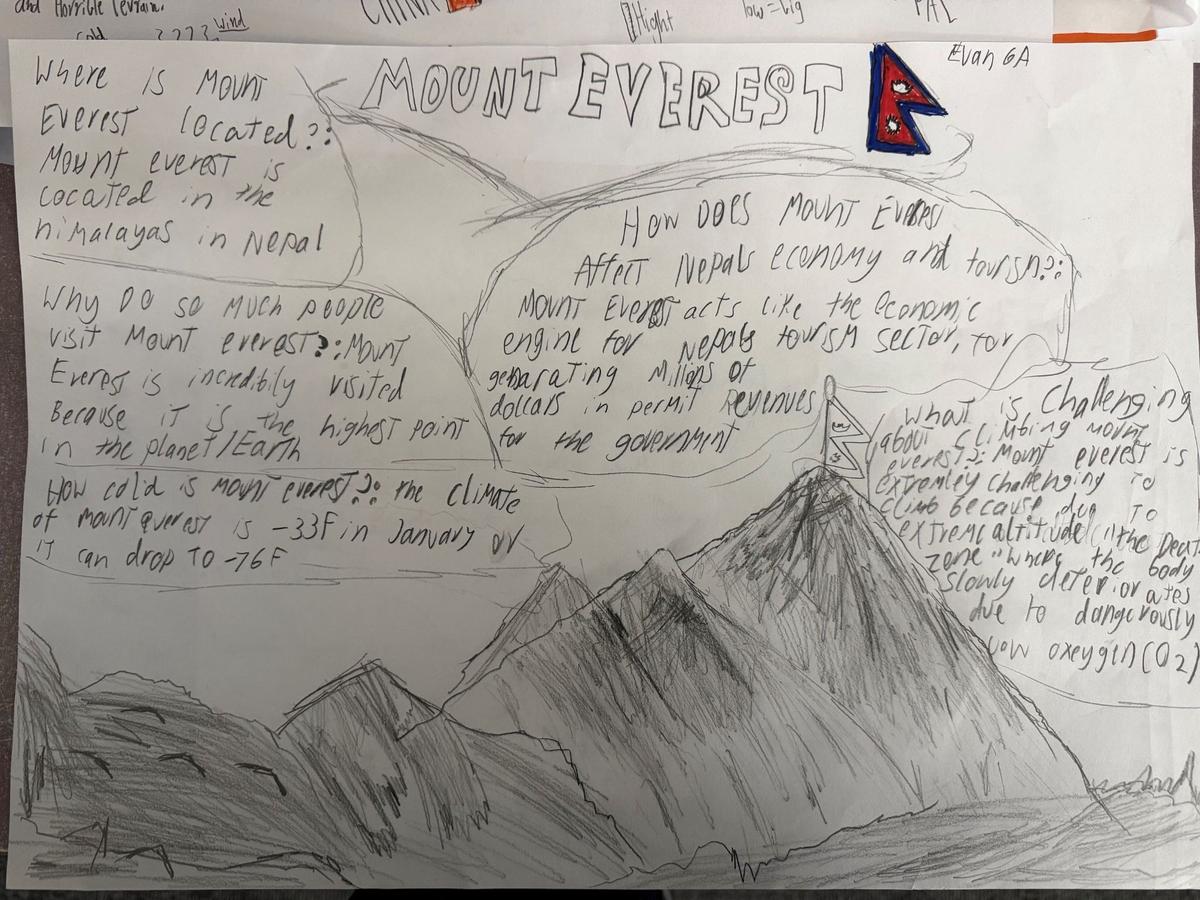 and Horrible Terrain.
cold
wind
Hight
low = big
PAL
MOUNT EVEREST
Evan 6A
Where is Mount
Everest located?:
Mount everest is
Located in the
himalayas in Nepal
Why Do so much people
visit Mount everest?: Mount
Everest is incredibily visited
Because it is the highest point
in the planet/Earth
How cold is mount everest?: the climate
of mount everest is -33F in January or
it can drop to -76F
How Does Mount Everest
Affect Nepals economy and tourism?:
Mount Everest acts like the economic
engine for Nepals tourism sector, for
genarating Millons of
dollars in permit Revenues
for the government
What is Challenging
about climbing mount
everest?: Mount everest is
extremley challenging to
climb because due to
extreme altitude "the Deat
zone" where the body
slowly deteriorates
due to dangerously
low oxeygen (O2)